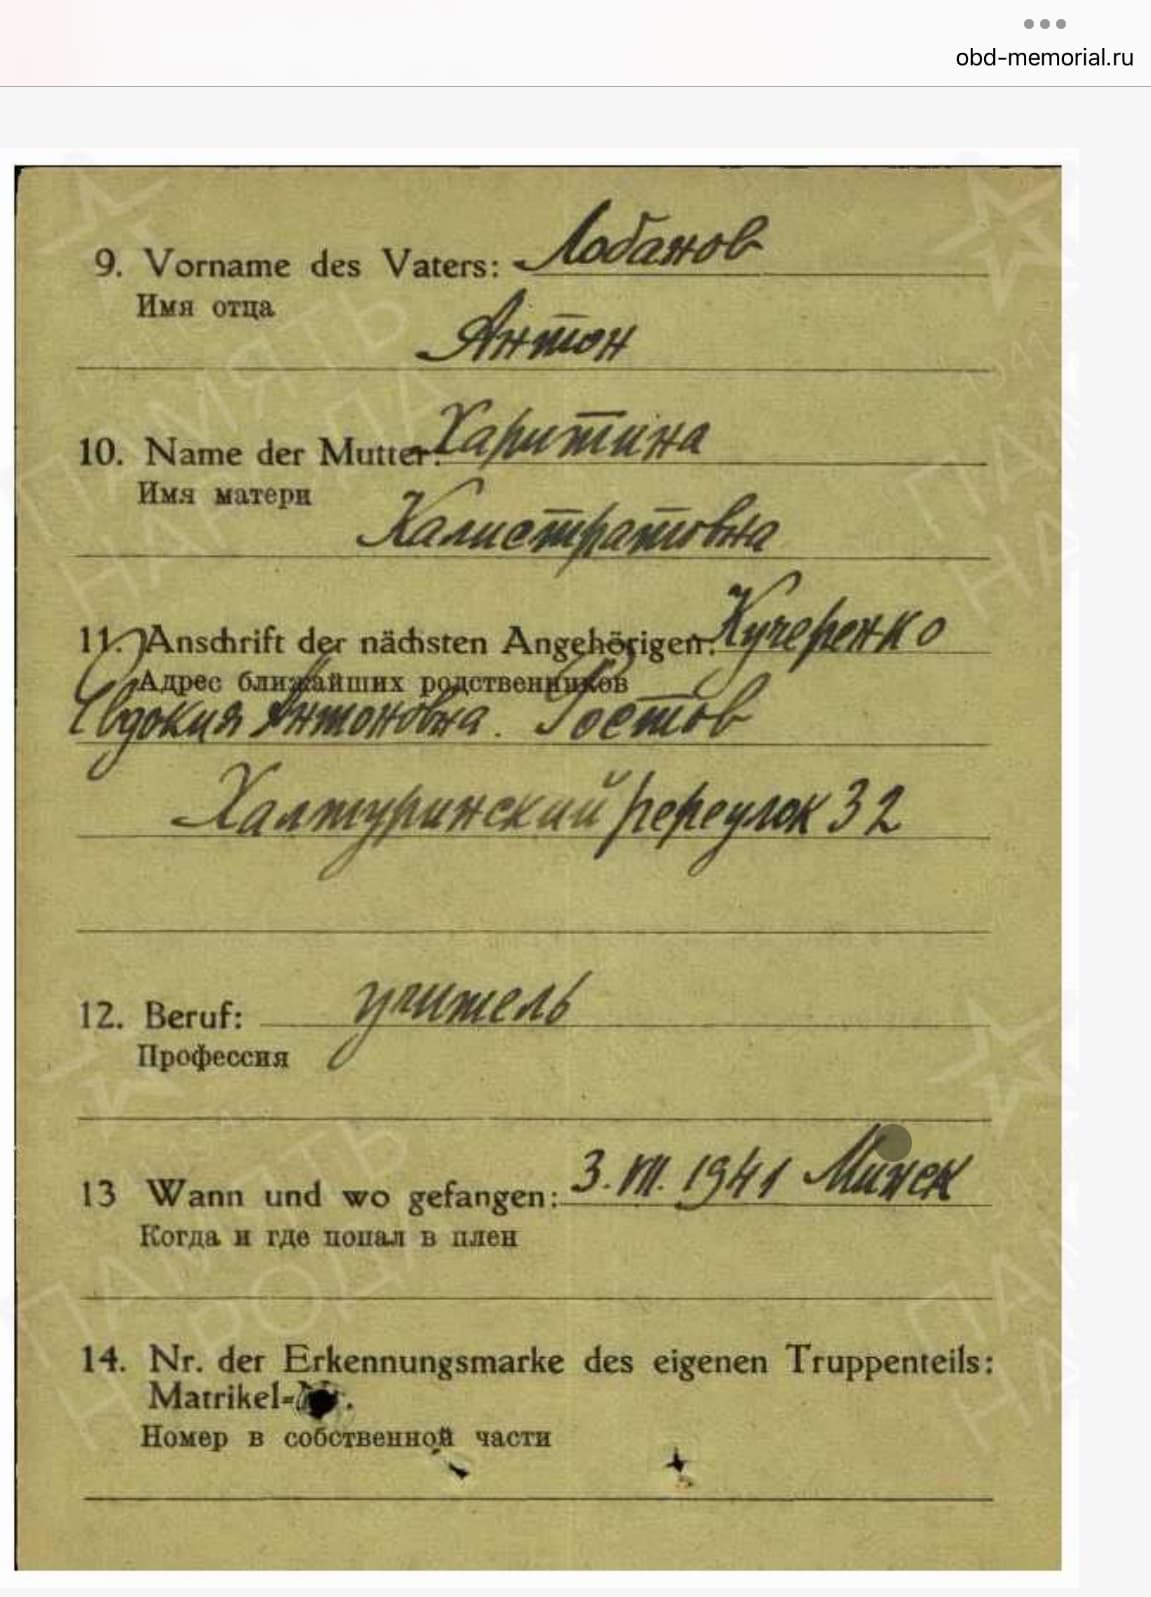 obd-memorial.ru
9. Vorname des Vaters: Лобанов
Имя отца
Антон
10. Name der Mutter: Харитина
Имя матери
Калистратовна
11. Anschrift der nächsten Angehörigen: Кучеренко
Адрес ближайших родственников
Евдокия Антоновна. Ростов
Халтуринский переулок 32
12. Beruf: учитель
Профессия
13 Wann und wo gefangen: 3. VII. 1941 Минск
Когда и где попал в плен
14. Nr. der Erkennungsmarke des eigenen Truppenteils:
Matrikel-
Номер в собственной части